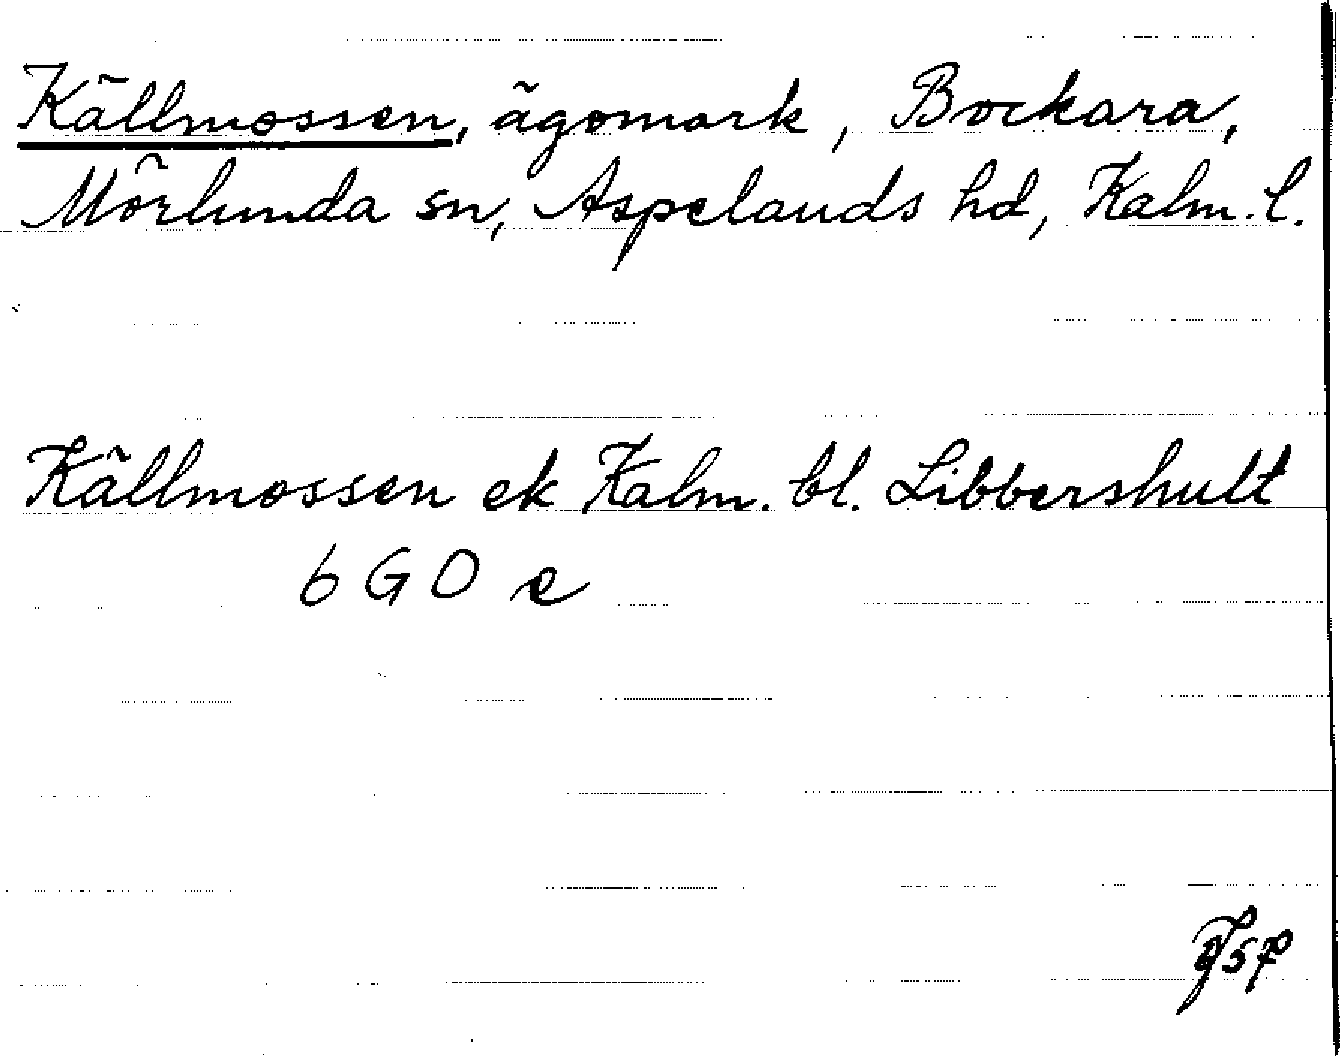 Källmossen, ägomark, Bockara,
Mörlunda sn, Aspelands hd, Kalm. l.
Källmossen ek Kalm. bl. Libbershult
6 G O e